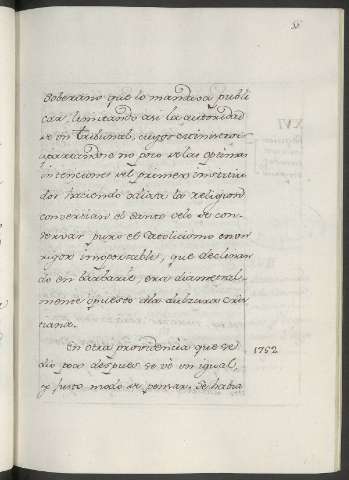 soberano que lo mandava publi
car, limitando asi la autoridad
de un tribunal, cuyos
apartandose no poco de las optimas
intenciones del primero institui
dor haciendo odiosa la religion
convertian el santo velo de con
servar puro el catolicismo en un
rigor insoportable, que declinan
do en barbarie, era diametral
mente opuesto a la dulzura cris
tiana.
En otra providencia que se 1752
dio poco despues se vé un igual,
y justo modo de pensar. Se habia